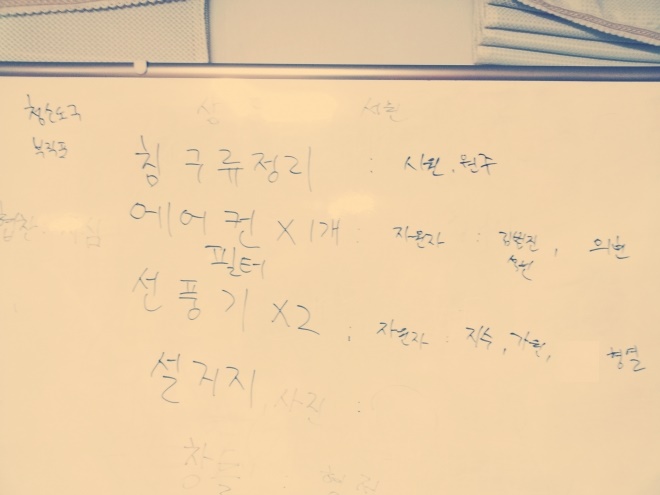 청소도구
부직포
침구류정리 : 시원, 원주
에어컨 X 1개 : 자원자 : 김현진, 의현
필터
선풍기 X2 ; 자원자 : 지수, 가원, 형열
설거지 사진 :
창틀 :